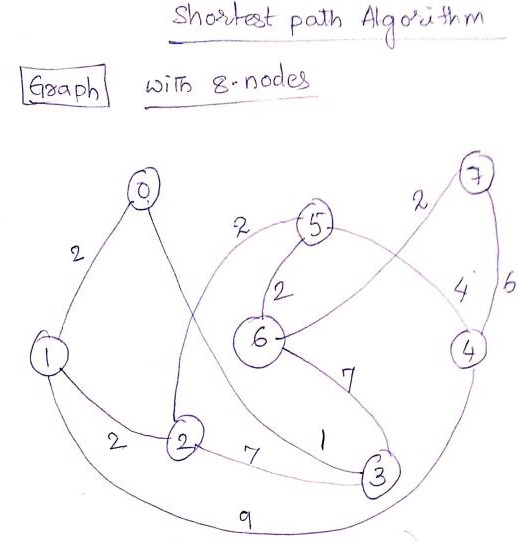 Shortest path Algorithm
Graph with 8-nodes
0
7
2
2
2
5
2
4
6
6
1
4
7
2
2
7
1
3
9